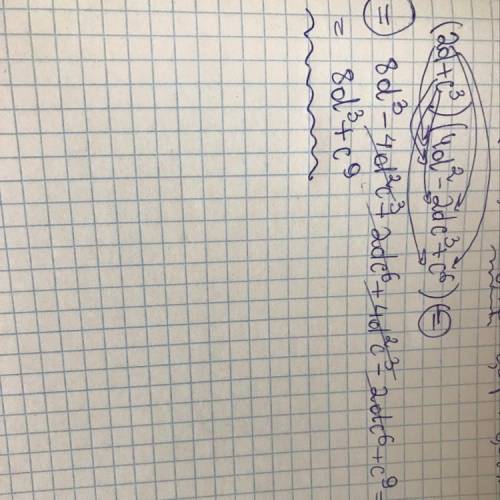 (2d+c³)(4d²-2dc³+c⁶) =
= 8d³-4d²c³+2dc⁶+4d²c³-2dc⁶+c⁹=
= 8d³+c⁹